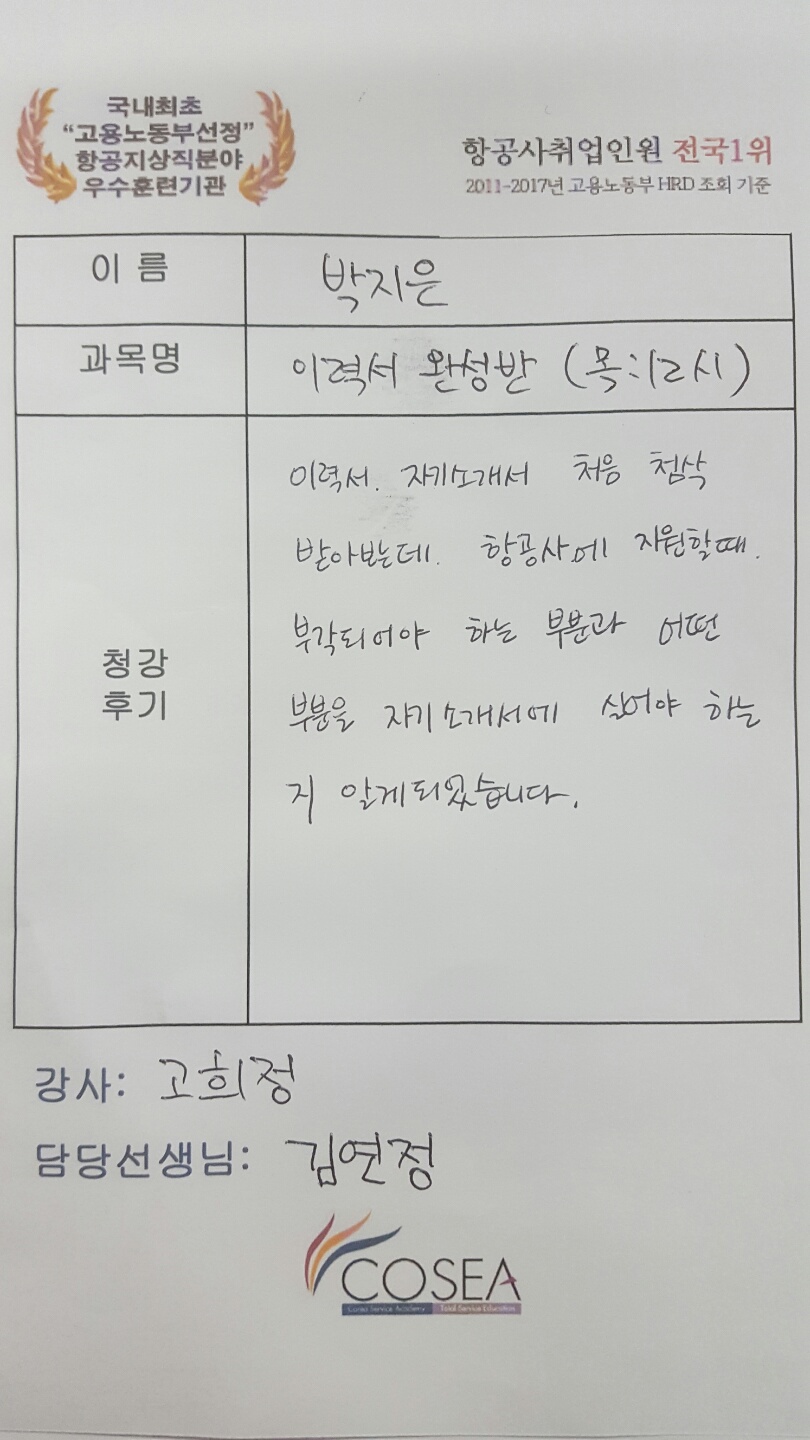 국내최초
“고용노동부선정”
항공지상직분야
우수훈련기관
항공사취업인원 전국1위
2011-2017년 고용노동부 HRD 조회 기준
이 름
박지은
과목명
이력서 완성반 (목:12시)
청강
후기
이력서. 자기소개서 처음 첨삭
받아봤는데. 항공사에 지원할때.
부각되어야 하는 부분과 어떤
부분을 자기소개서에 실어야 하는
지 알게되었습니다.
강사: 고희정
담당선생님: 김연정
COSEA
Corea Service Academy Total Service Education